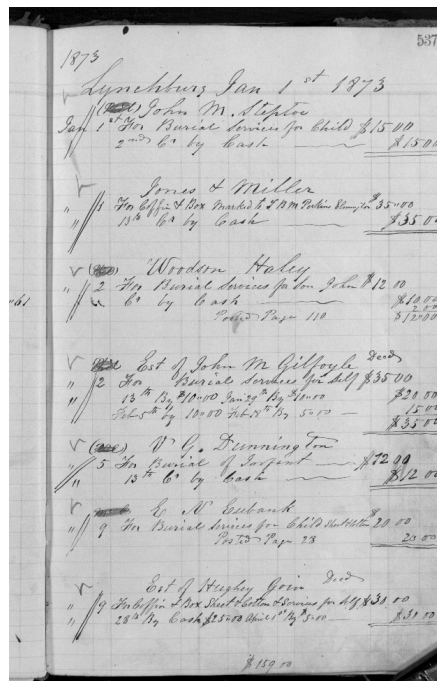 537
1873
Lynchburg Jan 1st 1873
John M. Steptoe
Jan 1st For Burial Services for Child $15.00
2nd Cr by Cash $15.00
Jones & Miller
" 1 For Coffin & Box Marked to T B M Perkins $35.00
" 13th Cr by Cash $35.00
Woodson Haley
" 2 For Burial Services for Son John $12.00
" Cr by Cash $10.00
2.00
Posted Page 110 $12.00
61
Est of John M Gilfoyle Decd
" 2 For Burial Services for Self $35.00
" 13th By $10.00 Jan 29th By $10.00 $20.00
Feb 5th by 10.00 Feb 18th By 5.00 15.00
$35.00
V. G. Dunnington
" 5 For Burial of Infant $12.00
" 13th Cr by Cash $12.00
E N Eubank
" 9 For Burial Services for Child $20.00
Posted Page 28 20.00
Est of Hughey Goin Decd
" 9 For Coffin & Box Sheet & Cotton & Services for Self $30.00
" 28th By Cash $25.00 April 1st By $5.00 $30.00
$159.00